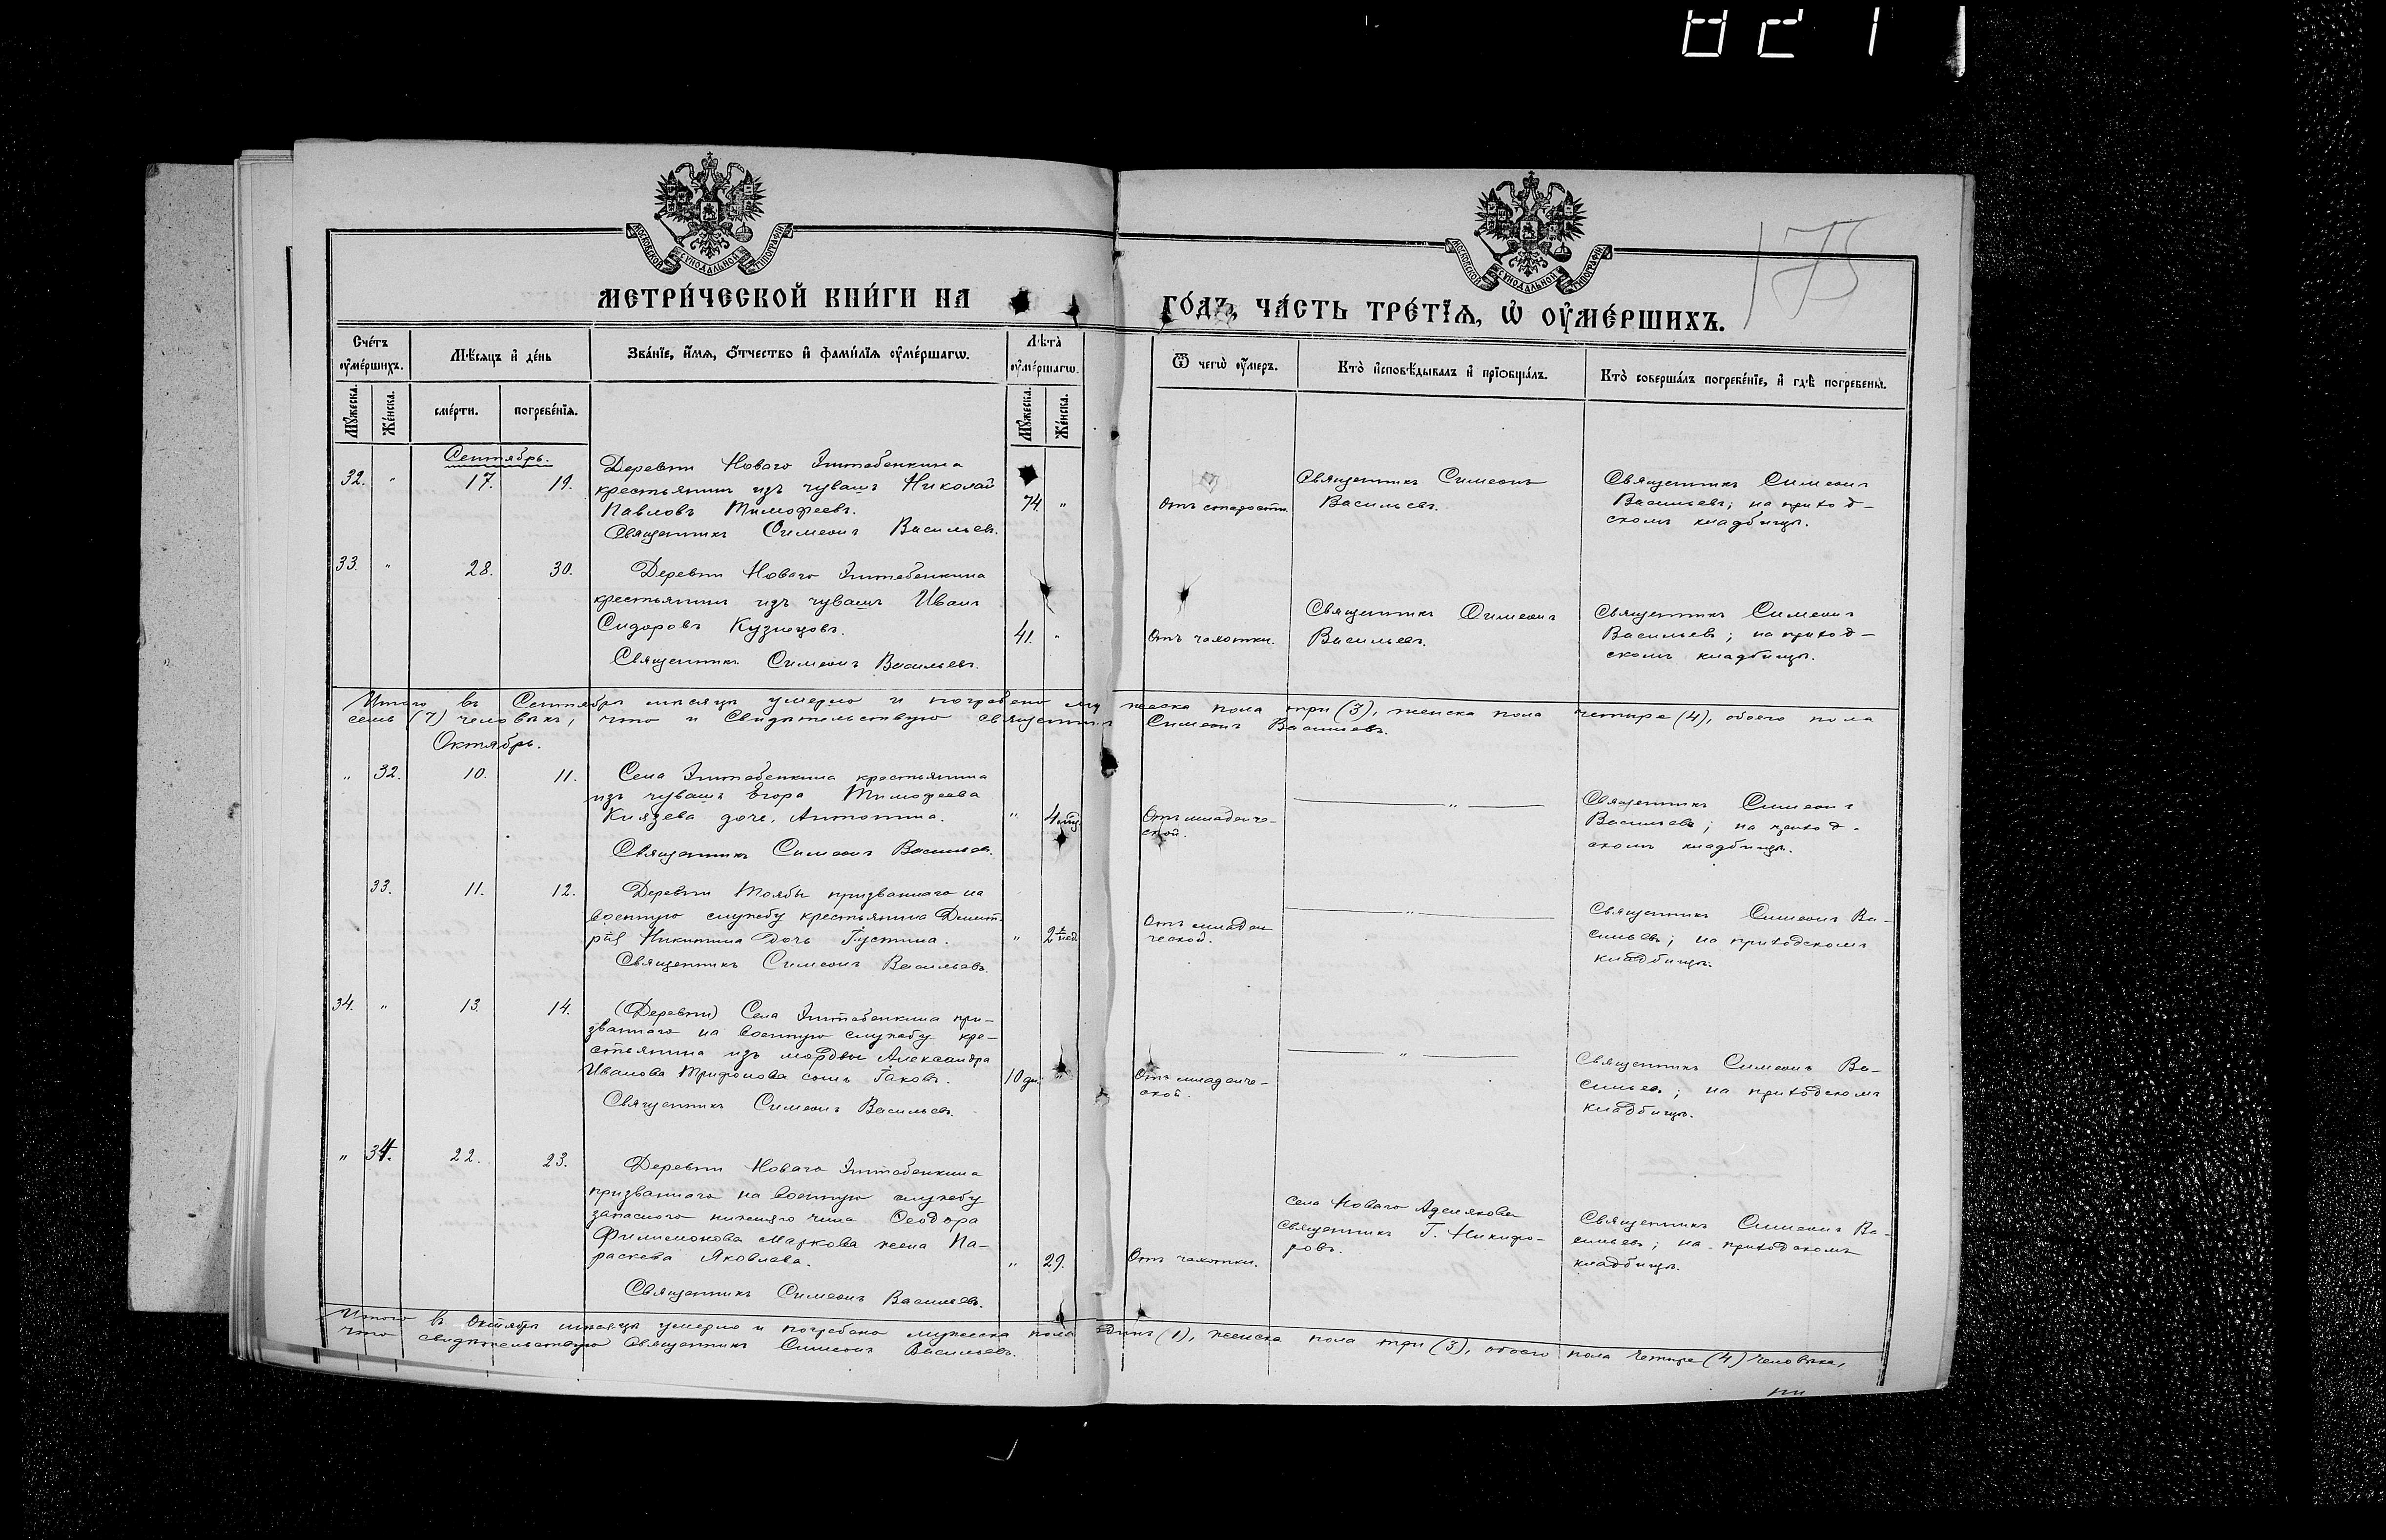 МОСКОВСКОЙ СУНОДАЛЬНОЙ ТИПОГРАФІИ
МОСКОВСКОЙ СУНОДАЛЬНОЙ ТИПОГРАФІИ
175
МЕТРИ́ЧЕСКОЙ КНИ́ГИ НА ГО́ДЪ, ЧА́СТЬ ТРЕ́ТЇѦ, Ѡ҆ ОУ҆МЕ́РШИХЪ.
Сче́тъ оу҆ме́ршихъ.
Мѣ́сѧцъ и҆ де́нь
Зва́нїе, и҆́мѧ, ѻ҆́тчество и҆ фами́лїѧ оу҆ме́ршагѡ.
Лѣ̀та̀ оу҆ме́ршагѡ.
Ѿ чегѡ̀ оу҆́меръ.
Кто̀ и҆сповѣ́дывалъ и҆ прїѡбща́лъ.
Кто̀ соверша́лъ погребе́нїе, и҆ гдѣ̀ погребены̀.
Мꙋ́жеска.
Же́нска.
сме́рти.
погребе́нїѧ.
Мꙋ́жеска.
Же́нска.
Сентябрь.
32. " 17. 19.
Деревни Новаго Эштебенкина
крестьянинъ изъ чувашъ Николай
Павловъ Тимофеевъ.
Священникъ Симеонъ Васильевъ.
74 "
Отъ старости.
Священникъ Симеонъ
Васильевъ.
Священникъ Симеонъ
Васильевъ; на приход-
скомъ кладбищѣ.
33. " 28. 30.
Деревни Новаго Эштебенкина
крестьянинъ изъ чувашъ Иванъ
Сидоровъ Кузнецовъ.
Священникъ Симеонъ Васильевъ.
41. "
Отъ чахотки.
Священникъ Симеонъ
Васильевъ.
Священникъ Симеонъ
Васильевъ; на приход-
скомъ кладбищѣ.
Итого въ Сентябрѣ мѣсяцѣ умерло и погребено мужеска пола три (3), женска пола четыре (4), обоего пола
семь (7) человѣкъ, что и свидѣтельствую священникъ Симеонъ Васильевъ.
Октябрь.
" 32. 10. 11.
Села Эштебенкина крестьянина
изъ чувашъ Егора Тимофеева
Князева дочь, Антонина.
Священникъ Симеонъ Васильевъ.
" 4 мѣс.
Отъ младенче-
ской.
"
Священникъ Симеонъ
Васильевъ; на приход-
скомъ кладбищѣ.
33. 11. 12.
Деревни Тоябы призваннаго на
военную службу крестьянина Димит-
рія Никитина дочь Іустина.
Священникъ Симеонъ Васильевъ.
" 2 нед.
Отъ младен
ческой.
"
Священникъ Симеонъ Ва-
сильевъ; на приходскомъ
кладбищѣ.
34. " 13. 14.
(Деревни) Села Эштебенкина при-
званнаго на военную службу кре-
стьянина изъ мордвы Александра
Иванова Трифонова сынъ Іаковъ.
Священникъ Симеонъ Васильевъ.
10 дн. "
Отъ младенче-
ской.
"
Священникъ Симеонъ Ва-
сильевъ; на приходскомъ
кладбищѣ.
" 34. 22. 23.
Деревни Новаго Эштебенкина
призваннаго на военную службу
запаснаго нижняго чина Ѳеодора
Филимонова Маркова жена Па-
раскева Яковлева.
Священникъ Симеонъ Васильевъ.
" 29.
Отъ чахотки.
Села Новаго Аделякова
священникъ Г. Никифо-
ровъ.
Священникъ Симеонъ Ва-
сильевъ; на приходскомъ
кладбищѣ.
Итого въ Октябрѣ мѣсяцѣ умерло и погребено мужеска пола одинъ (1), женска пола три (3), обоего пола четыре (4) человѣка,
что свидѣтельствую Священникъ Симеонъ Васильевъ.